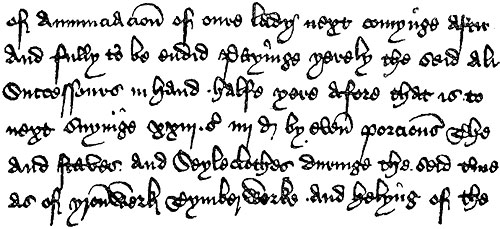 of Annunciacion of oure lady next comynge after
And fully to be endid Payinge yerely the seid
Successours in hand halfe yere afore that is to
next suyinge xxiij s iiij d by even porcions The
and staves and Seyleclothes duringe the seid time
as of yronwerk Tymberwerke and helying of the